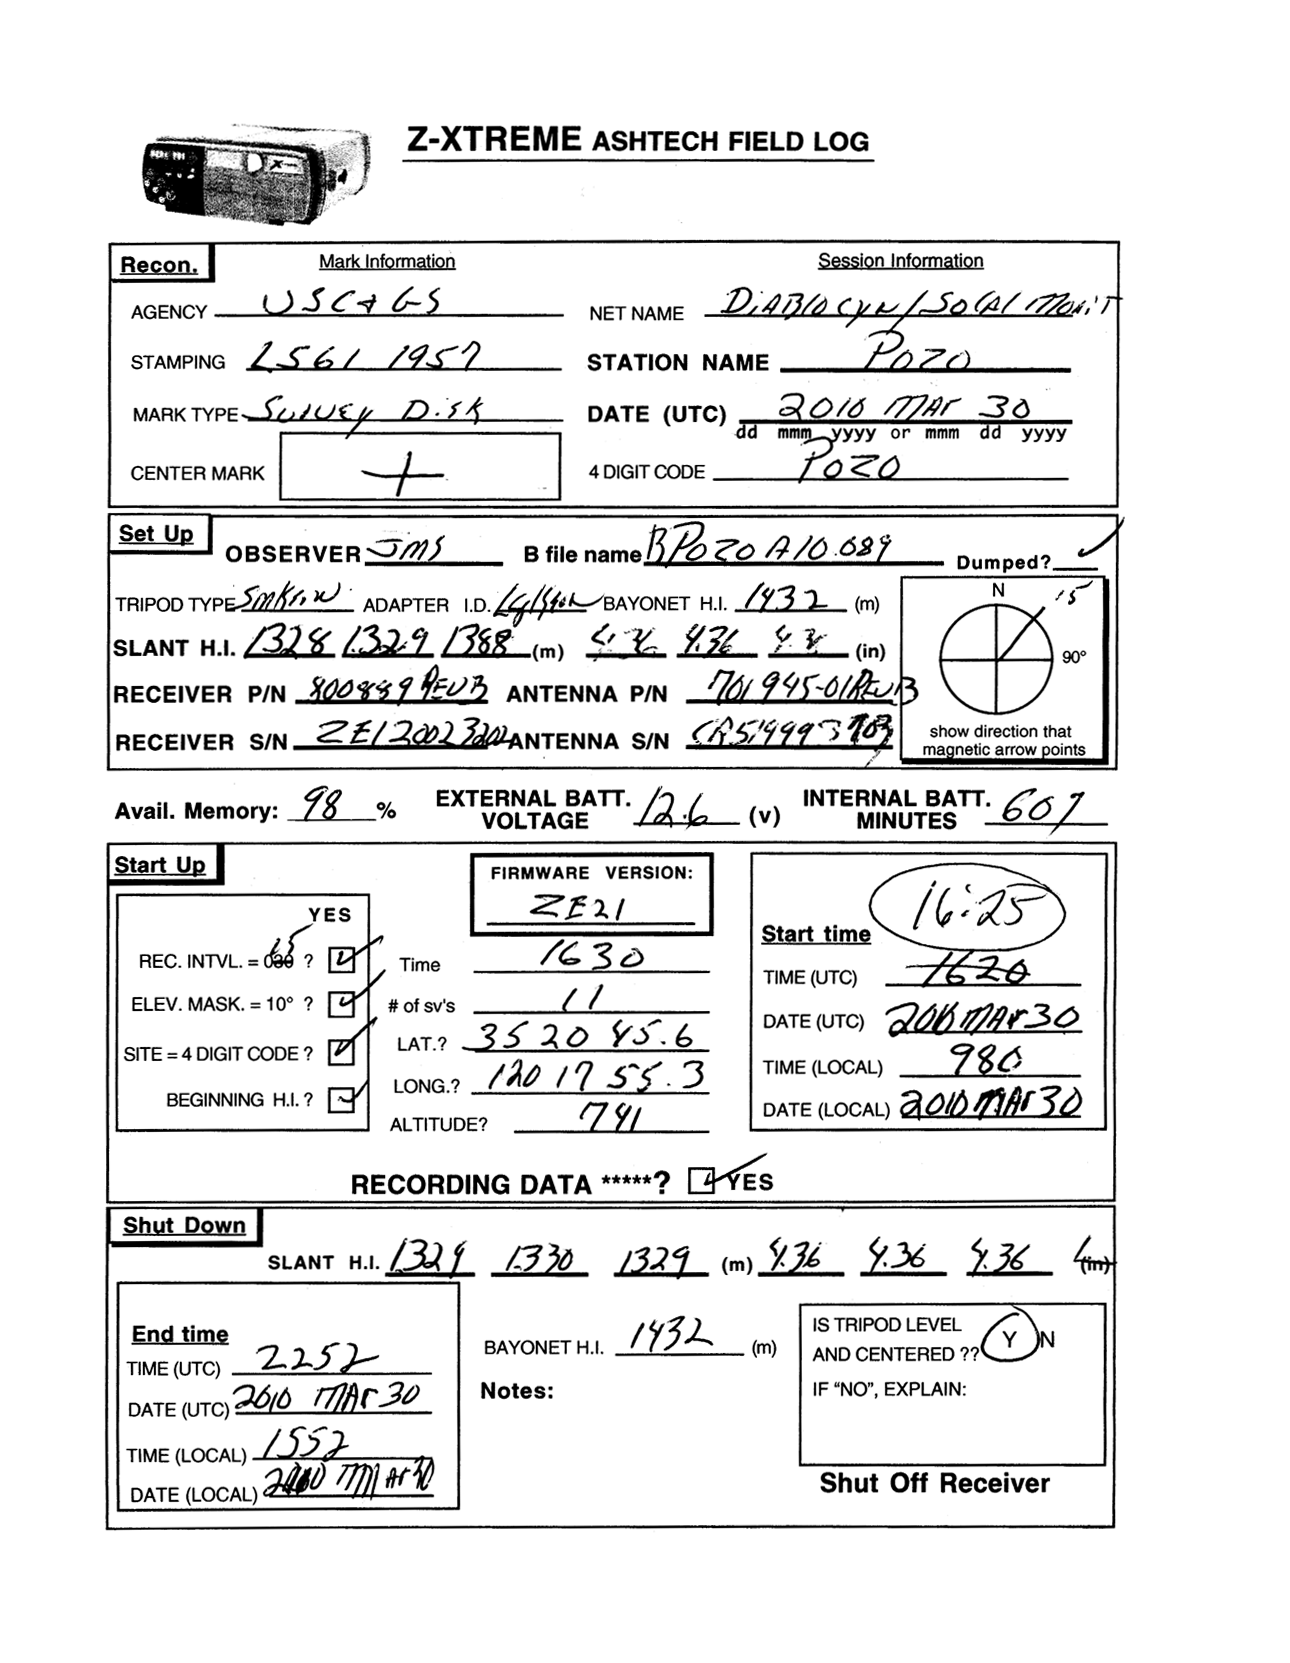 Z-XTREME ASHTECH FIELD LOG
Recon.
Mark Information
Session Information
AGENCY USC&GS
NET NAME DiABlO CYN / SoCAl MoniT
STAMPING L561 1957
STATION NAME POZO
MARK TYPE Survey Disk
DATE (UTC) 2010 MAR 30
dd mmm yyyy or mmm dd yyyy
CENTER MARK +
4 DIGIT CODE POZO
Set Up
OBSERVER JMS
B file name BPOZOA10.089
Dumped? ✓
TRIPOD TYPE
ADAPTER I.D.
BAYONET H.I. 1432 (m)
N 15
SLANT H.I. 1328 1.329 1388 (m) 4.36 4.36 (in)
90°
RECEIVER P/N 800889 REVB ANTENNA P/N 701945-01REVB
RECEIVER S/N ANTENNA S/N
show direction that
magnetic arrow points
Avail. Memory: 98 %
EXTERNAL BATT. VOLTAGE 12.6 (v)
INTERNAL BATT. MINUTES 607
Start Up
FIRMWARE VERSION:
ZE21
YES
16:25
Start time
REC. INTVL. = 030 15 ? ✓
Time 1630
TIME (UTC) 1620
ELEV. MASK. = 10° ? ✓
# of sv's 11
DATE (UTC) 2010 MAR 30
SITE = 4 DIGIT CODE ? ✓
LAT.? 35 20 45.6
TIME (LOCAL)
LONG.? 120 17 55.3
BEGINNING H.I. ? ✓
DATE (LOCAL) 2010 MAR 30
ALTITUDE? 741
RECORDING DATA *****? ✓ YES
Shut Down
SLANT H.I. 1329 1.330 1329 (m) 4.36 4.36 4.36 (in)
End time
TIME (UTC) 2252
BAYONET H.I. 1432 (m)
IS TRIPOD LEVEL
AND CENTERED ?? Y N
DATE (UTC) 2010 MAR 30
Notes:
IF “NO”, EXPLAIN:
TIME (LOCAL) 1552
DATE (LOCAL) 2010 MAR 30
Shut Off Receiver